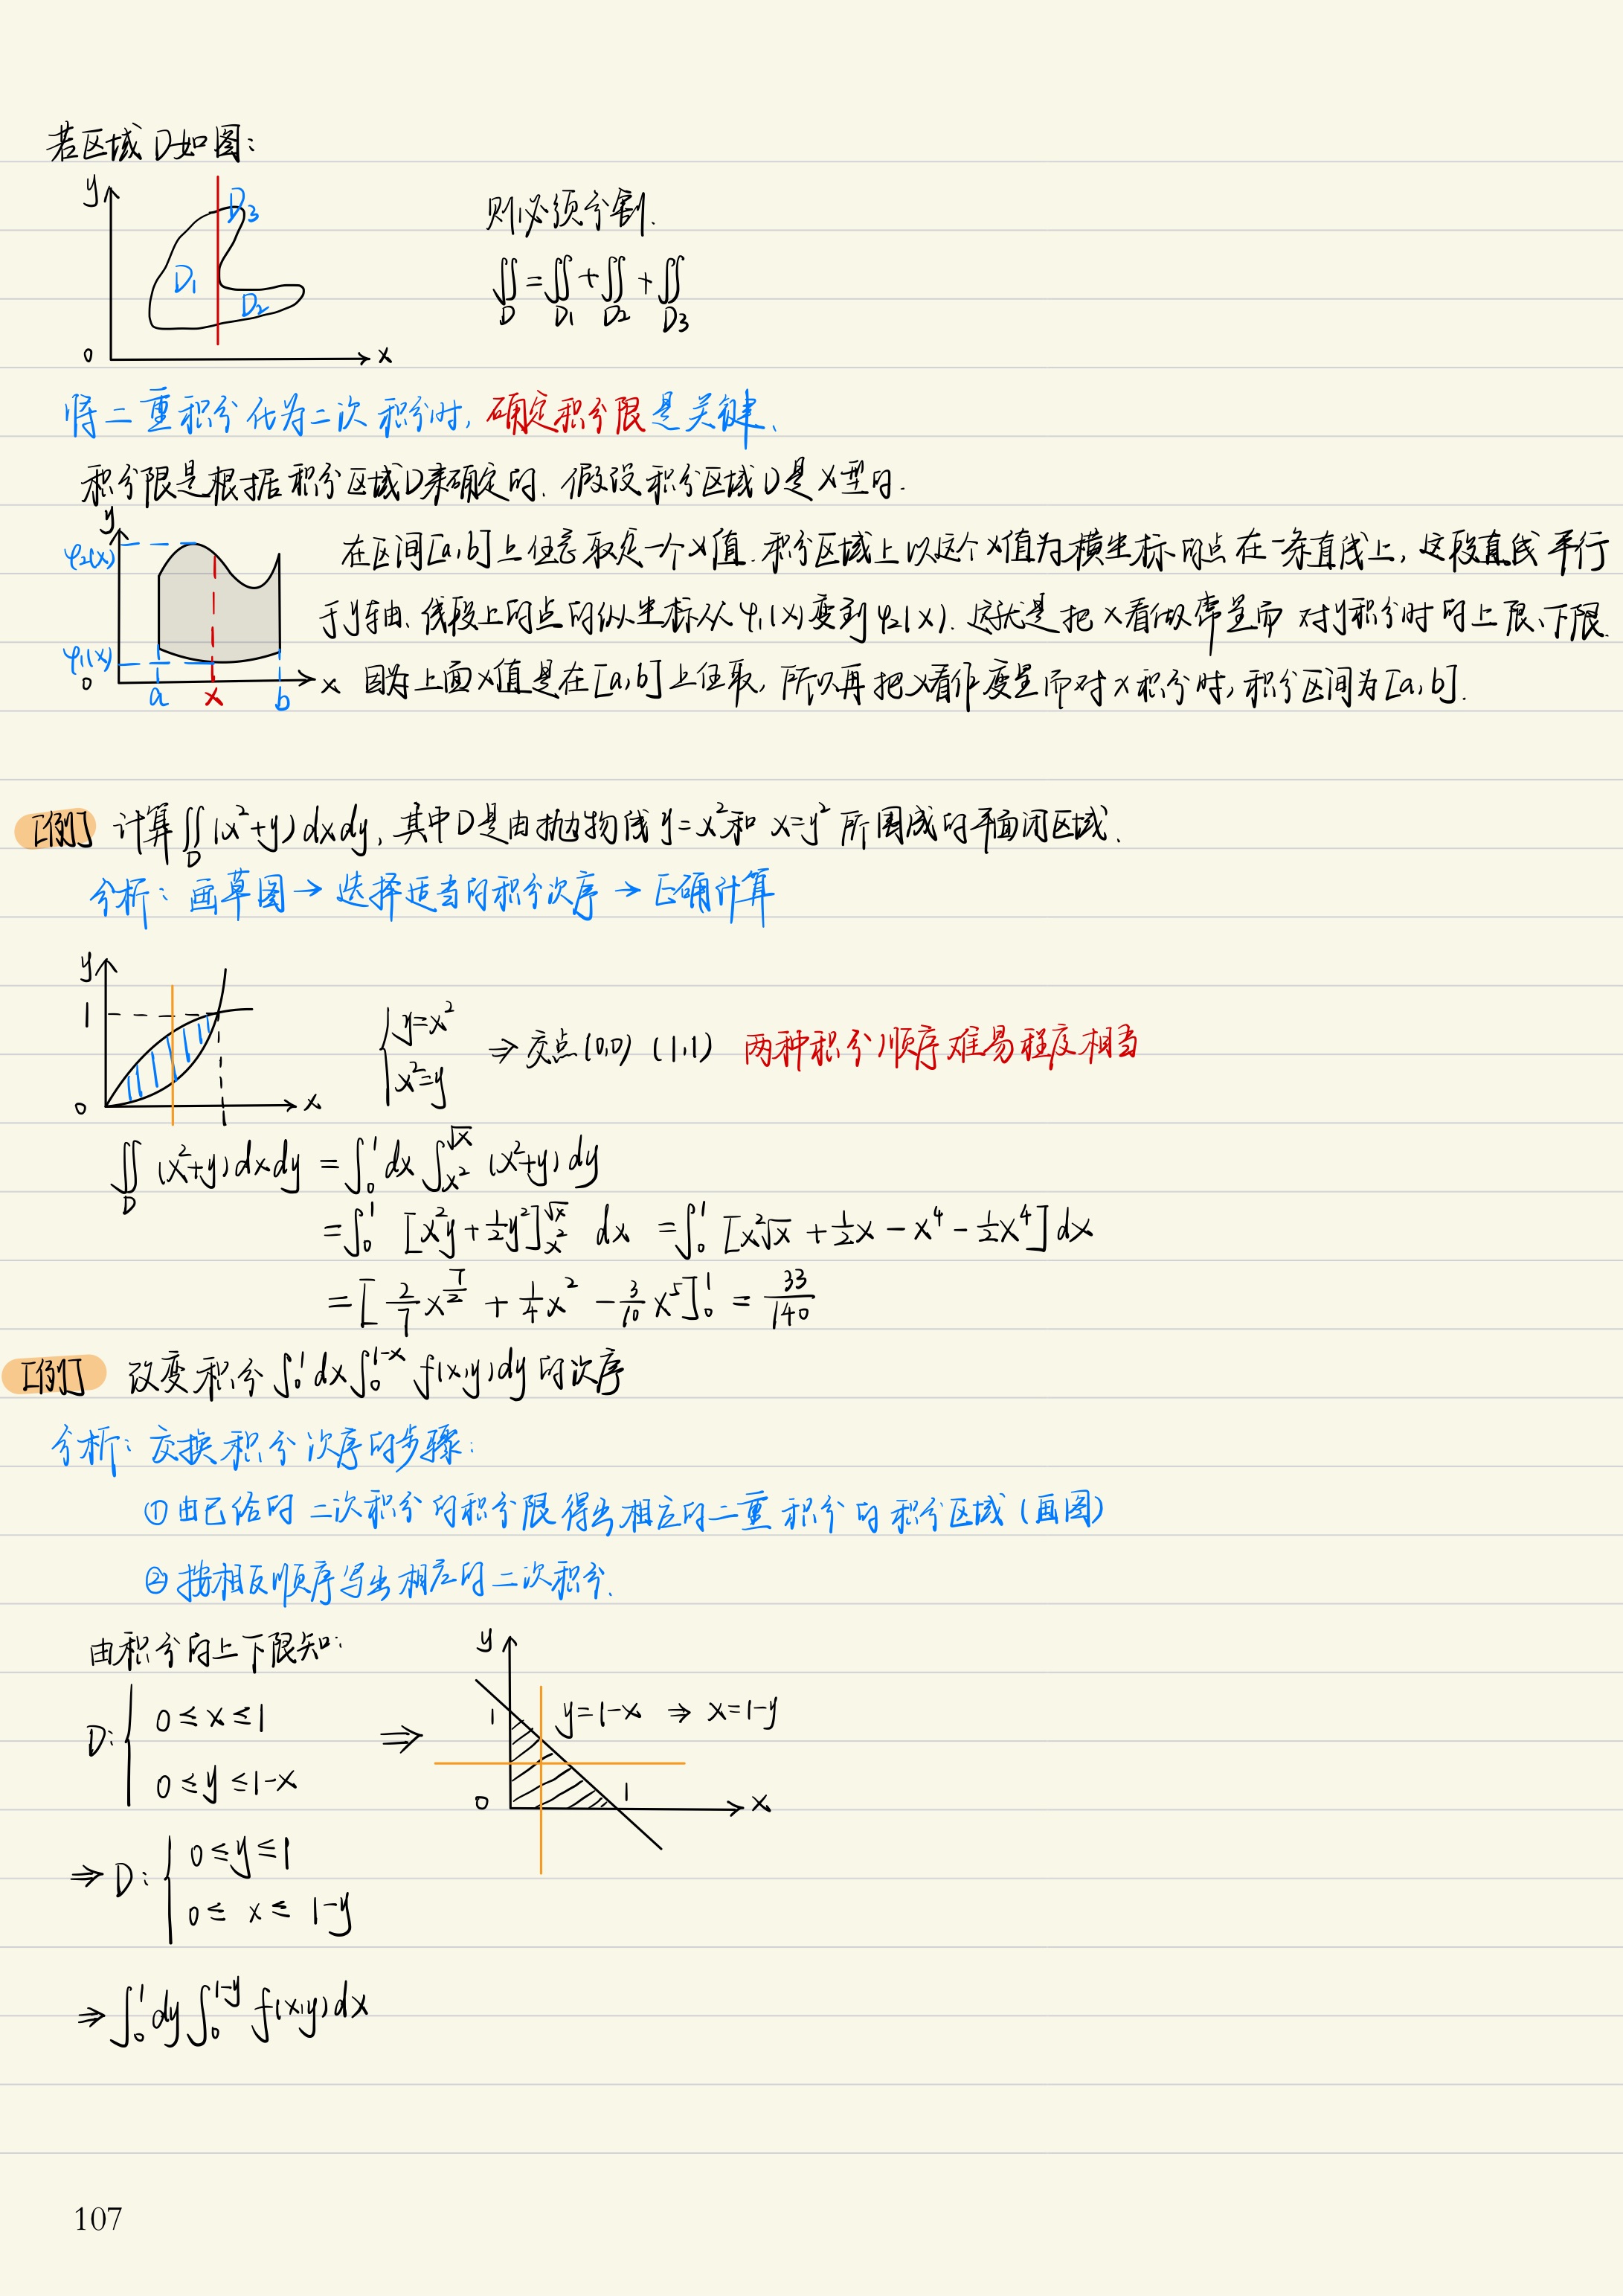 若区域D如图:
y
D3
D1
D2
0
x
则必须分割.
∬_D = ∬_D1 + ∬_D2 + ∬_D3
将二重积分化为二次积分时, 确定积分限是关键、
积分限是根据积分区域D来确定的. 假设积分区域D是X型的.
y
φ2(x)
φ1(x)
0
a
x
b
x
在区间[a,b]上任意取定一个x值. 积分区域上以这个x值为横坐标的点在一条直线上, 这段直线平行
于y轴、线段上的点的纵坐标从φ1(x)变到φ2(x). 这就是把x看做常量而对y积分时的上限、下限.
因为上面x值是在[a,b]上任取, 所以再把x看作变量而对x积分时, 积分区间为[a,b].
[例] 计算∬_D (x²+y) dxdy, 其中D是由抛物线y=x²和 x=y² 所围成的平面闭区域.
分析: 画草图→选择适当的积分次序→正确计算
y
1
0
x
1
{ y=x²
x²=y
⇒ 交点(0,0) (1,1) 两种积分顺序难易程度相当
∬_D (x²+y)dxdy = ∫_0^1 dx ∫_{x²}^{√x} (x²+y)dy
= ∫_0^1 [x²y+½y²]_{x²}^{√x} dx = ∫_0^1 [x²√x + ½x − x⁴ − ½x⁴] dx
= [2/7 x^{7/2} + ¼x² − 3/10 x⁵]_0^1 = 33/140
[例] 改变积分∫_0^1 dx∫_0^{1-x} f(x,y)dy的次序
分析: 交换积分次序的步骤:
① 由已给的二次积分的积分限得出相应的二重积分的积分区域(画图)
② 按相反顺序写出相应的二次积分.
由积分的上下限知:
D: { 0≤x≤1
0≤y≤1-x
⇒
y
1
y=1-x ⇒ x=1-y
0
1
x
⇒ D: { 0≤y≤1
0≤ x ≤ 1-y
⇒ ∫_0^1 dy ∫_0^{1-y} f(x,y)dx
107